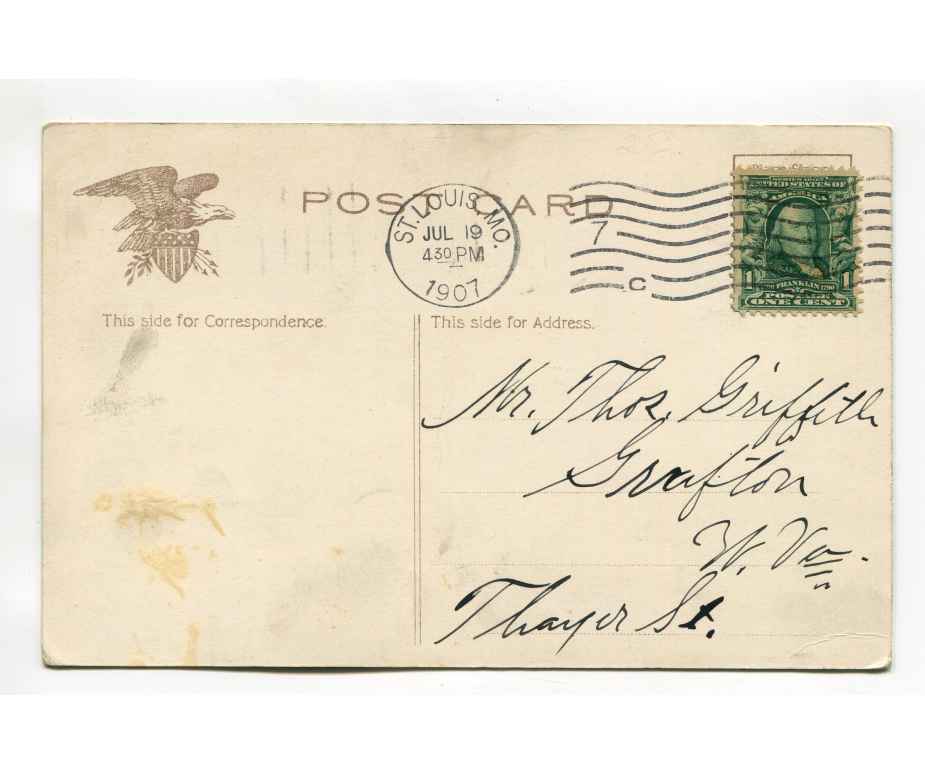 POST CARD
ST. LOUIS, MO.
JUL 19
430 PM
1907
7
C
UNITED STATES OF
AMERICA
1 FRANKLIN 1
1790
POSTAGE
ONE CENT
This side for Correspondence.
This side for Address.
Mr. Thos. Griffith
Grafton
W. Va.
Thayer St.